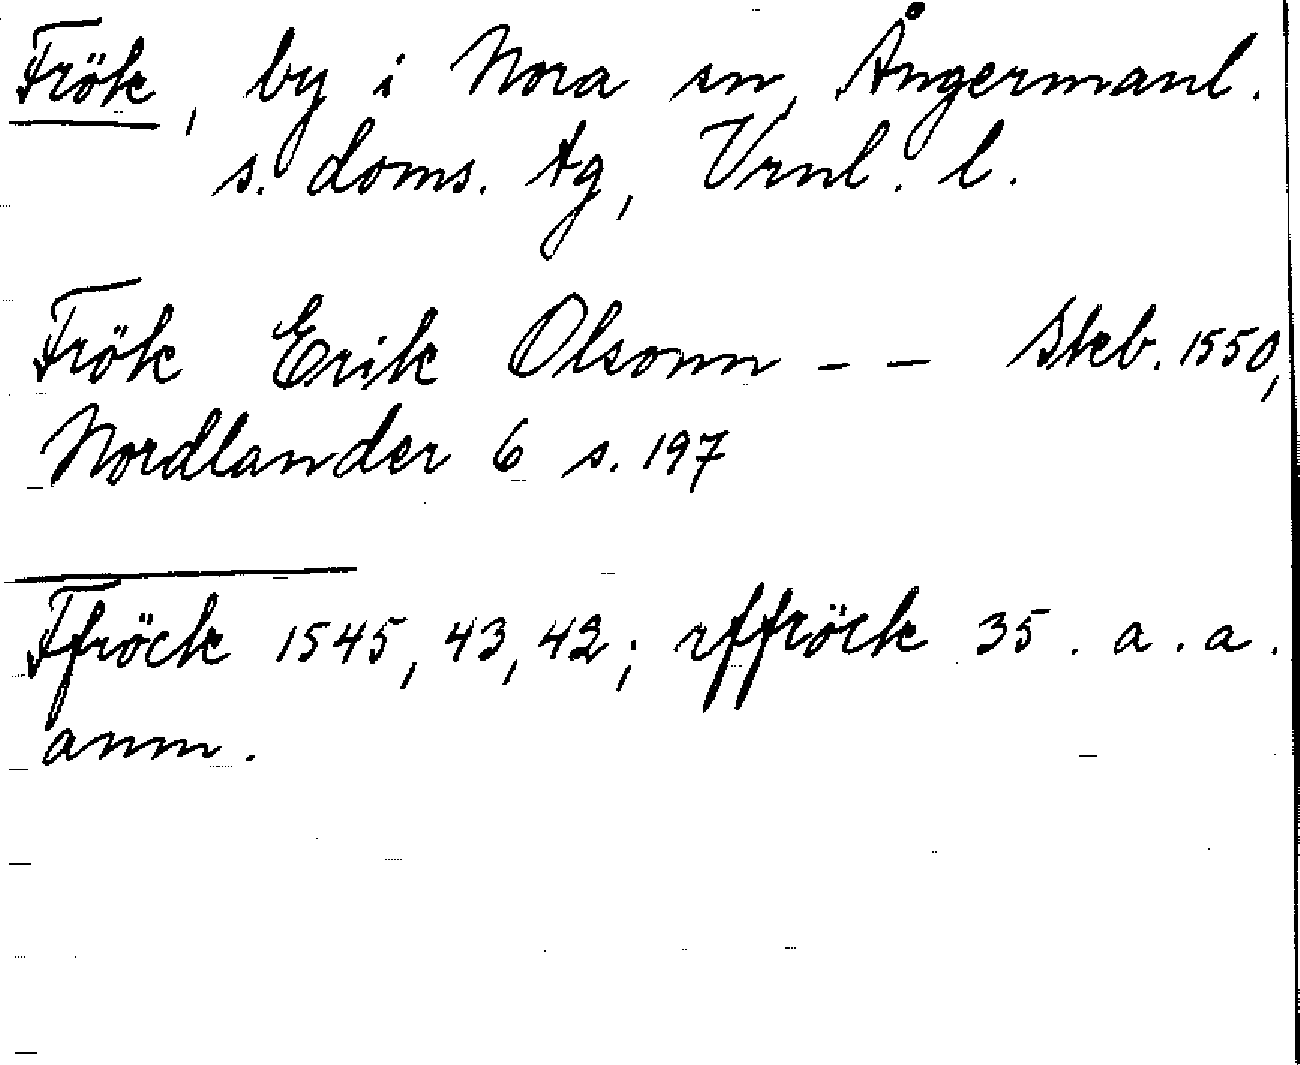 Frök, by i Nora sn, Ångermanl.
s. doms. tg, Vrnl. l.
Frök Erik Olsonn - - Skb. 1550,
Nordlander 6 s. 197
Ffröck 1545, 43, 42; rffröck 35. a. a.
anm.